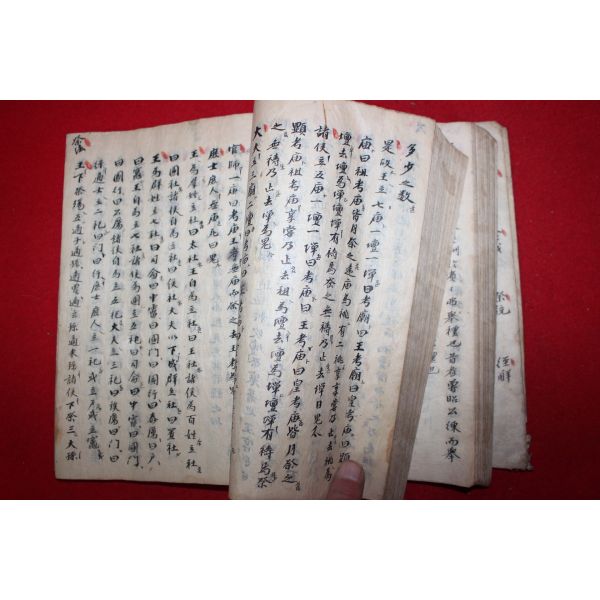 祭統
經解
多少之數
是故王立七庙一壇一墠曰考廟曰王考廟曰皇考庙曰顯
庙曰祖考庙皆月祭之遠庙爲祧有二祧享嘗乃止去祧爲
壇去壇爲墠壇墠有祷焉祭之無祷乃止去墠曰鬼
諸侯立五庙一壇一墠曰考庙曰王考庙曰皇考庙皆月祭之
顯考庙祖考庙享嘗乃止去祖爲壇去壇爲墠壇墠有祷焉祭
之無祷乃止去墠爲鬼
大夫立三廟二壇曰考庙曰
官師一庙曰考庙王考無庙而祭之去王考爲鬼
庶士庶人無庙死曰鬼
王爲群姓立社曰太社王自爲立社曰王社諸侯爲百姓立社
曰國社諸侯自爲立社曰侯社大夫以下成群立社曰置社
王爲群姓立七祀曰司命曰中霤曰國門曰國行曰泰厲曰户
曰竈王自爲立七祀諸侯爲國立五祀曰司命曰中霤曰國門
曰國行曰公厲諸侯自爲立五祀大夫立三祀曰族厲曰門曰
行適士立二祀曰門曰行庶士庶人立一祀或立户或立竈
王下祭殤五適子適孫適曾孫適玄孫適來孫諸侯下祭三大夫
祭法